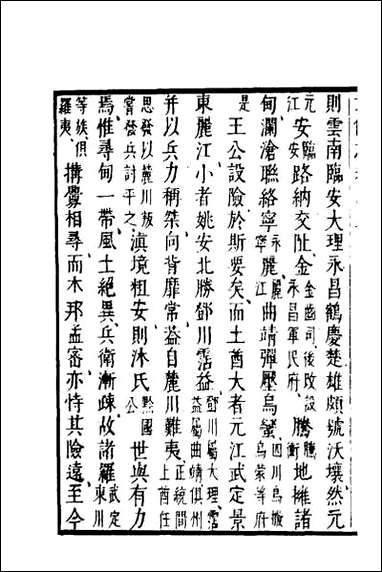 則雲南臨安大理永昌鶴慶楚雄頗號沃壤然元
元江安臨安路納交阯金金齒司後改設永昌軍民府騰騰衝地擁諸
甸瀾滄聯絡寧永寧麗麗江曲靖彈壓烏蠻四川烏撒烏蒙等府
是王公設險於斯要矣而土酋大者元江武定景
東麗江小者姚安北勝鄧川霑益鄧川屬大理霑益屬曲靖俱州
并以兵力稱桀向背靡常益自麓川難夷正統間土酋任
思發以麓川叛嘗發兵討平之滇境粗安則沐氏黔國公世與有力
焉惟尋甸一帶風土絕異兵衛漸疎故諸羅武定東川
等族俱羅夷搆釁相尋而木邦孟密亦恃其險遠至今